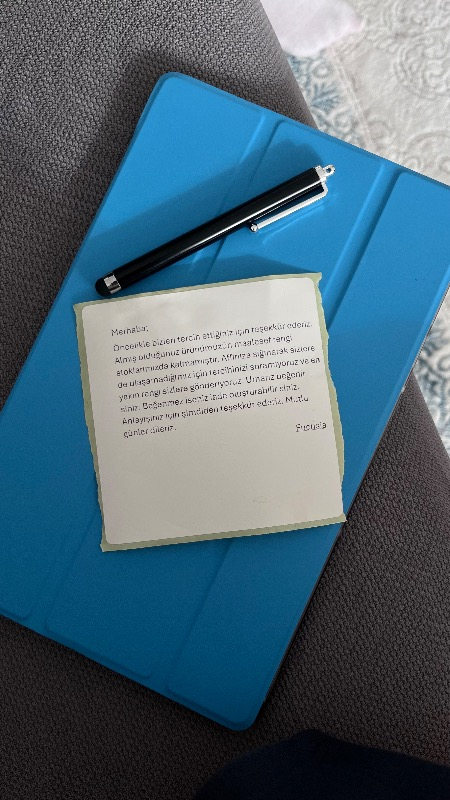 Merhaba;
Öncelikle bizleri tercih ettiğiniz için teşekkür ederiz.
Almış olduğunuz ürünümüzün maalesef rengi
stoklarımızda kalmamıştır. Affınıza sığınarak sizlere
de ulaşamadığımız için tercihinizi soramıyoruz ve en
yakın rengi sizlere gönderiyoruz. Umarız beğenir
siniz. Beğenmez iseniz iade oluşturabilir siniz.
Anlayışınız için şimdiden teşekkür ederiz. Mutlu
günler dileriz.